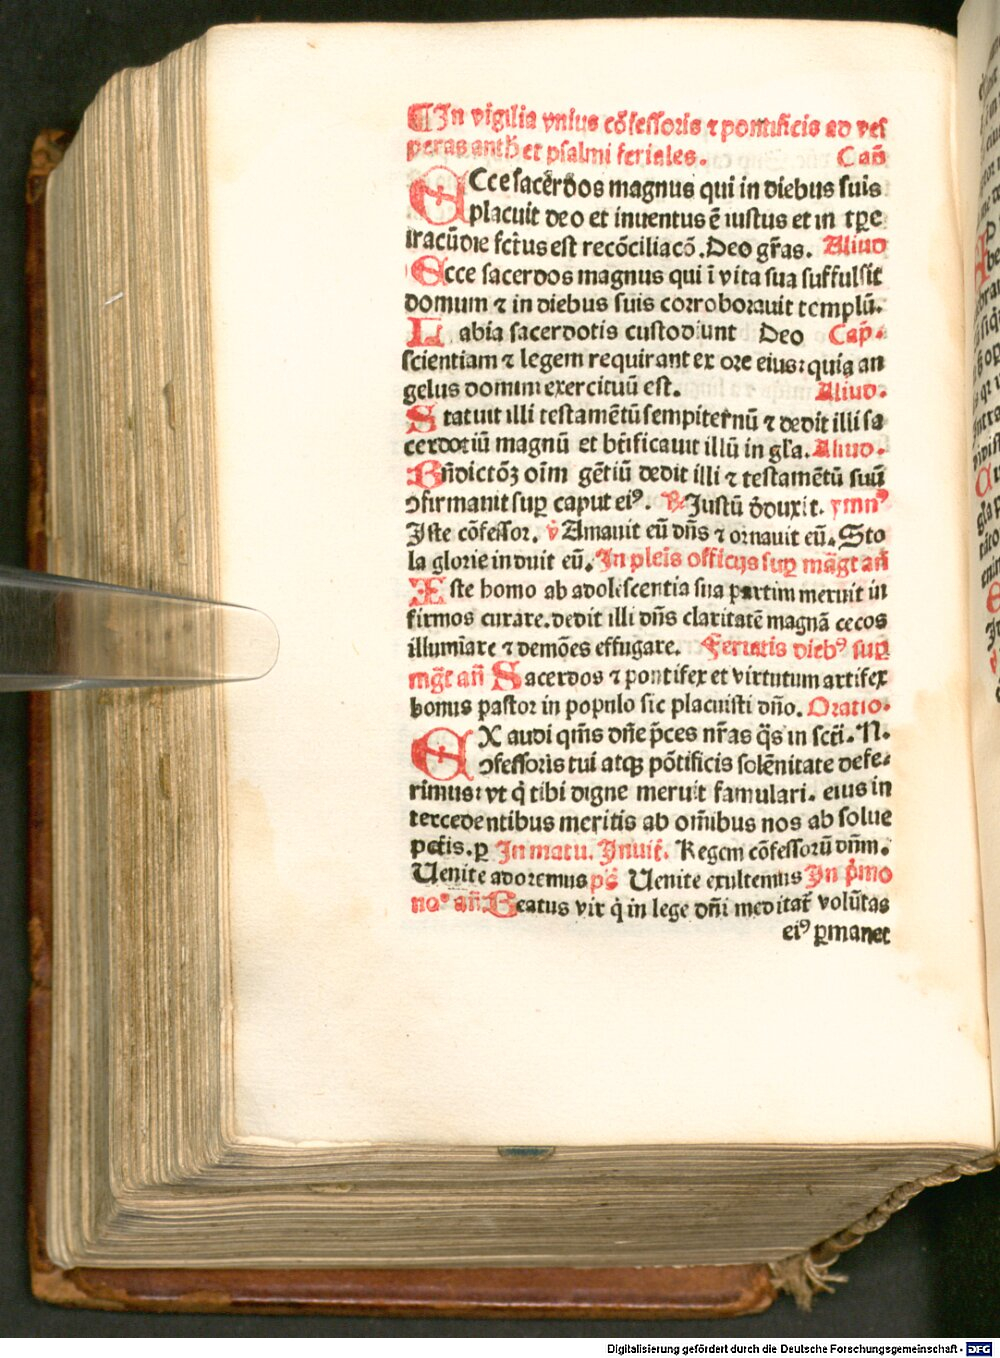 ¶In vigilia vnius cõfessoris ⁊ pontificis ad ves
peras antħ et psalmi feriales. Cañ
ECce sacerdos magnus qui in diebus suis
placuit deo et inuentus ē iustus et in tꝑe
iracūdie fct̄us est recōciliacō. Deo gr̄as. Aliud
Ecce sacerdos magnus qui ī vita sua suffulsit
domum ⁊ in diebus suis corroborauit templū.
Labia sacerdotis custodiunt Deo Cap̄.
scientiam ⁊ legem requirant ex ore eius: quia an
gelus domini exercituū est. Aliud.
Statuit illi testamētū sempiternū ⁊ dedit illi sa
cerdotiū magnū et bt̄ificauit illū in gl̄a. Aliud.
Bñdictōꝫ oīm gētiū dedit illi ⁊ testamētū suū
ↄfirmauit suꝑ caput eiꝰ. ℟ Justū d̄duxit. ymnꝰ
Iste cōfessor. v̄ Amauit eū dñs ⁊ ornauit eū. Sto
la glorie induit eū. In pleīs officijs suꝑ māgt̄ añ
Iste homo ab adolescentia sua partim meruit in
firmos curare. dedit illi dñs claritatē magnā cecos
illumīare ⁊ demōes effugare. Feriatis diebꝰ suꝑ
mḡt̄ añ Sacerdos ⁊ pontifex et virtutum artifex
bonus pastor in populo sic placuisti dño. Oratio.
EXaudi qm̄s dñe p̄ces nr̄as q̄s in scti. N.
ↄfessoris tui atqꝫ pōtificis solēnitate defe⸗
rimus: vt q̇ tibi digne meruit famulari. eius in
tercedentibus meritis ab om̄ibus nos absolue
pctīs. ꝑ In matu. Inuit̄. Regem cōfessorū dñm.
Uenite adoremus pš Uenite exultemus In p̄mo
noº añ. Beatus vir q̇ in lege dñi meditat̄ volūtas
eiꝰ ꝑmanet
Digitalisierung gefördert durch die Deutsche Forschungsgemeinschaft - DFG